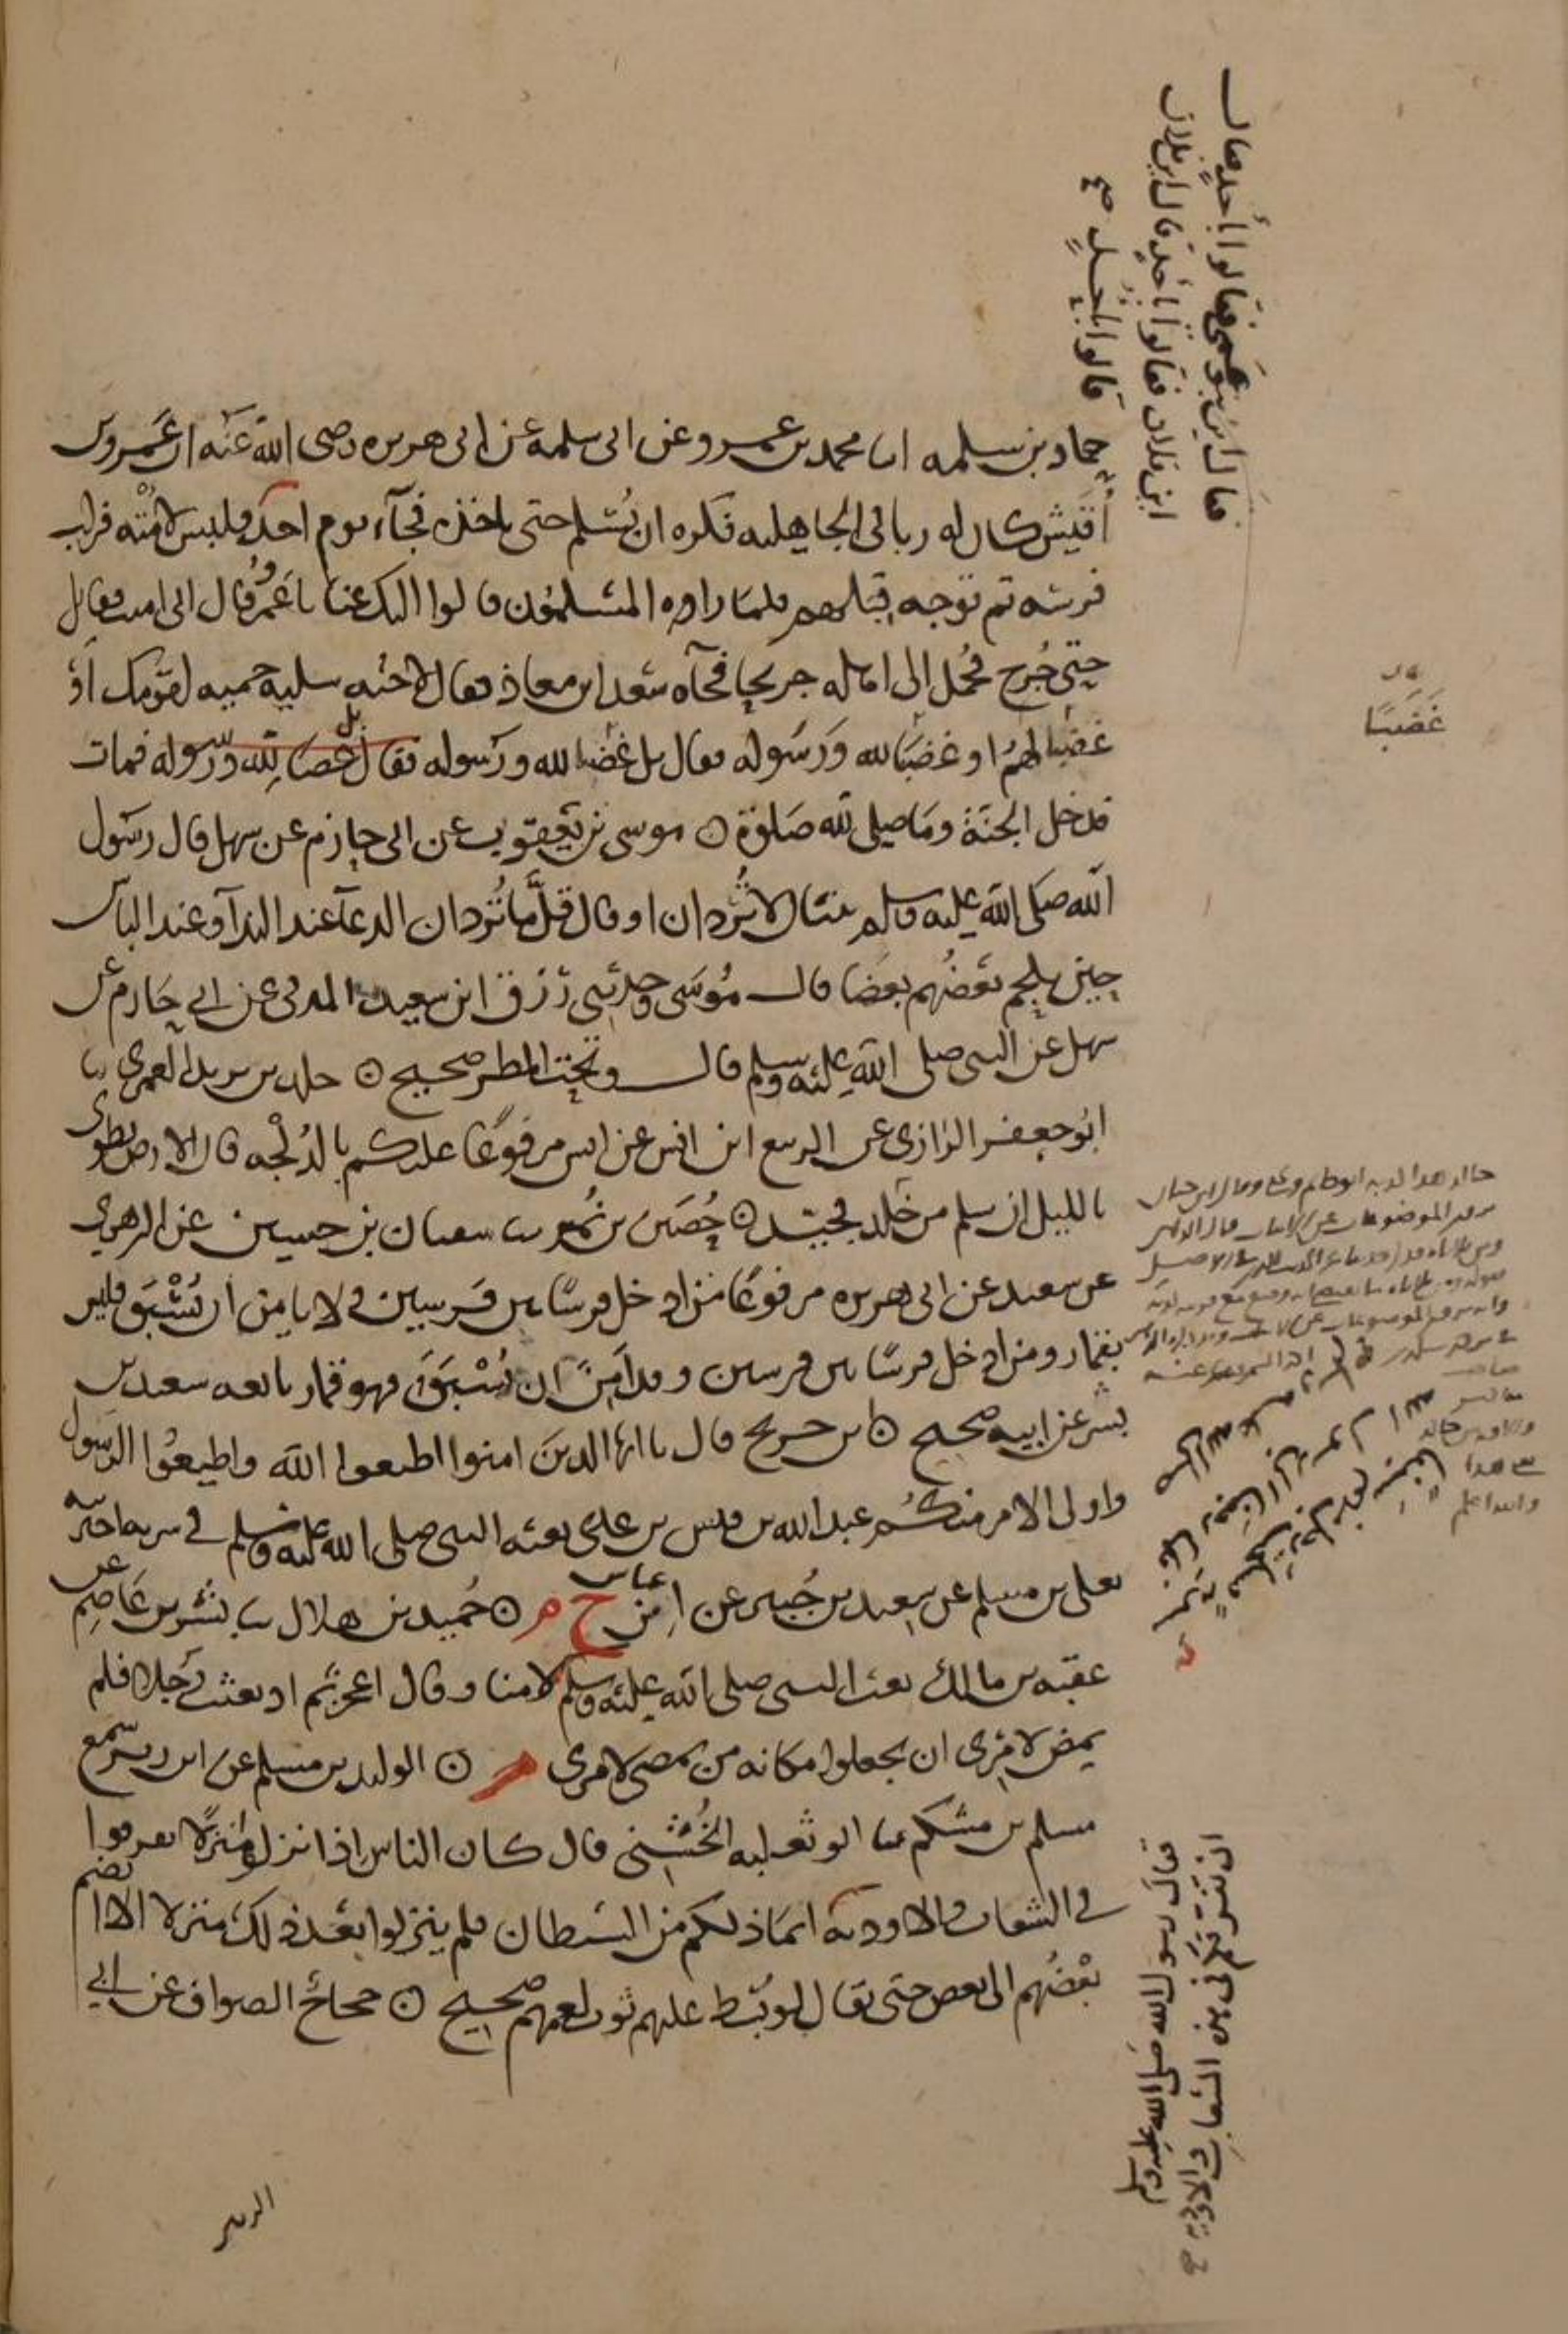 حماد بن سلمه انا محمد بن عمرو عن ابى سلمه عن ابى هريره رضى الله عنه ان عمرو بن
أقيش كان له ربا فى الجاهليه فكره ان يسلم حتى ياخذه فجآء يوم احد فلبس لأمته وركب
فرسه ثم توجه قبلهم فلما راوه المسلمون قالوا اليك عنا يا عمرو قال انى امنت فقاتل
حتى جرح فحمل الى اهله جريحا فجآه سعد ابن معاذ فقال لاخته سليه حميه لقومك او
غضبا لهم او غضبا لله ورسوله فقال بل غضبا لله ورسوله فقال بل غضبا لله ورسوله فمات
فدخل الجنة وما صلى لله صلوة ۞ موسى بن يعقوب عن ابى حازم عن سهل قال رسول
الله صلى الله عليه وسلم ثنتان لا تردان او قال قل ما تردان الدعآ عند الندآ وعند الباس
حين يلحم بعضهم بعضا قال موسى وحدثنى رزق ابن سعيد المدنى عن ابى حازم عن
سهل عن النبى صلى الله عليه وسلم قال وتحت المطر صحيح ۞ خلد بن يزيد العمرى ثنا
ابو جعفر الرازى عن الربيع ابن انس عن انس مرفوعا عليكم بالدلجه فان الارض تطوى
بالليل ان سلم من خلد فجيد ۞ حصين بن نمير ثنا سفيان بن حسين عن الزهرى
عن سعيد عن ابى هريره مرفوعا من ادخل فرسا بين فرسين فى لا يامن ان يسبق فليس
بقمار ومن ادخل فرسا بين فرسين وقد امن ان يسبق فهو قمار تابعه سعيد بن
بشر عن ابيه صحيح ۞ ابن جريج قال يا ايها الذين امنوا اطيعوا الله واطيعوا الرسول
واولى الامر منكم عبد الله بن قيس بن عدى بعثه النبى صلى الله عليه وسلم فى سريه اخبرنيه
يعلى بن مسلم عن سعيد بن جبير عن ابن عباس خ م ۞ حميد بن هلال ثنا بشر بن عاصم عن
عقبه بن مالك بعث النبى صلى الله عليه وسلم لامنا وقال اعجزتم اذ بعثت رجلا فلم
يمض لامرى ان تجعلوا مكانه من يمضى لامرى م ۞ الوليد بن مسلم عن ابن زبر سمع
مسلم بن مشكم ثنا ابو ثعلبه الخشنى قال كان الناس اذا نزلوا منزلا تفرقوا
فى الشعاب والاوديه انما ذلكم من الشيطان فلم ينزلوا بعد ذلك منزلا الا انضم
بعضهم الى بعض حتى يقال لو بسط عليهم ثوب لعمهم صحيح ۞ حجاج الصواف عن ابى
الزبير
قال اين بنو عمى فقالوا باحد قال
اين فلان فقالوا باحد قال اين فلان
قالوا باحد صح
غضبا
فقال رسول الله صلى الله عليه وسلم
ان تفرقكم فى هذه الشعاب والاوديه صح